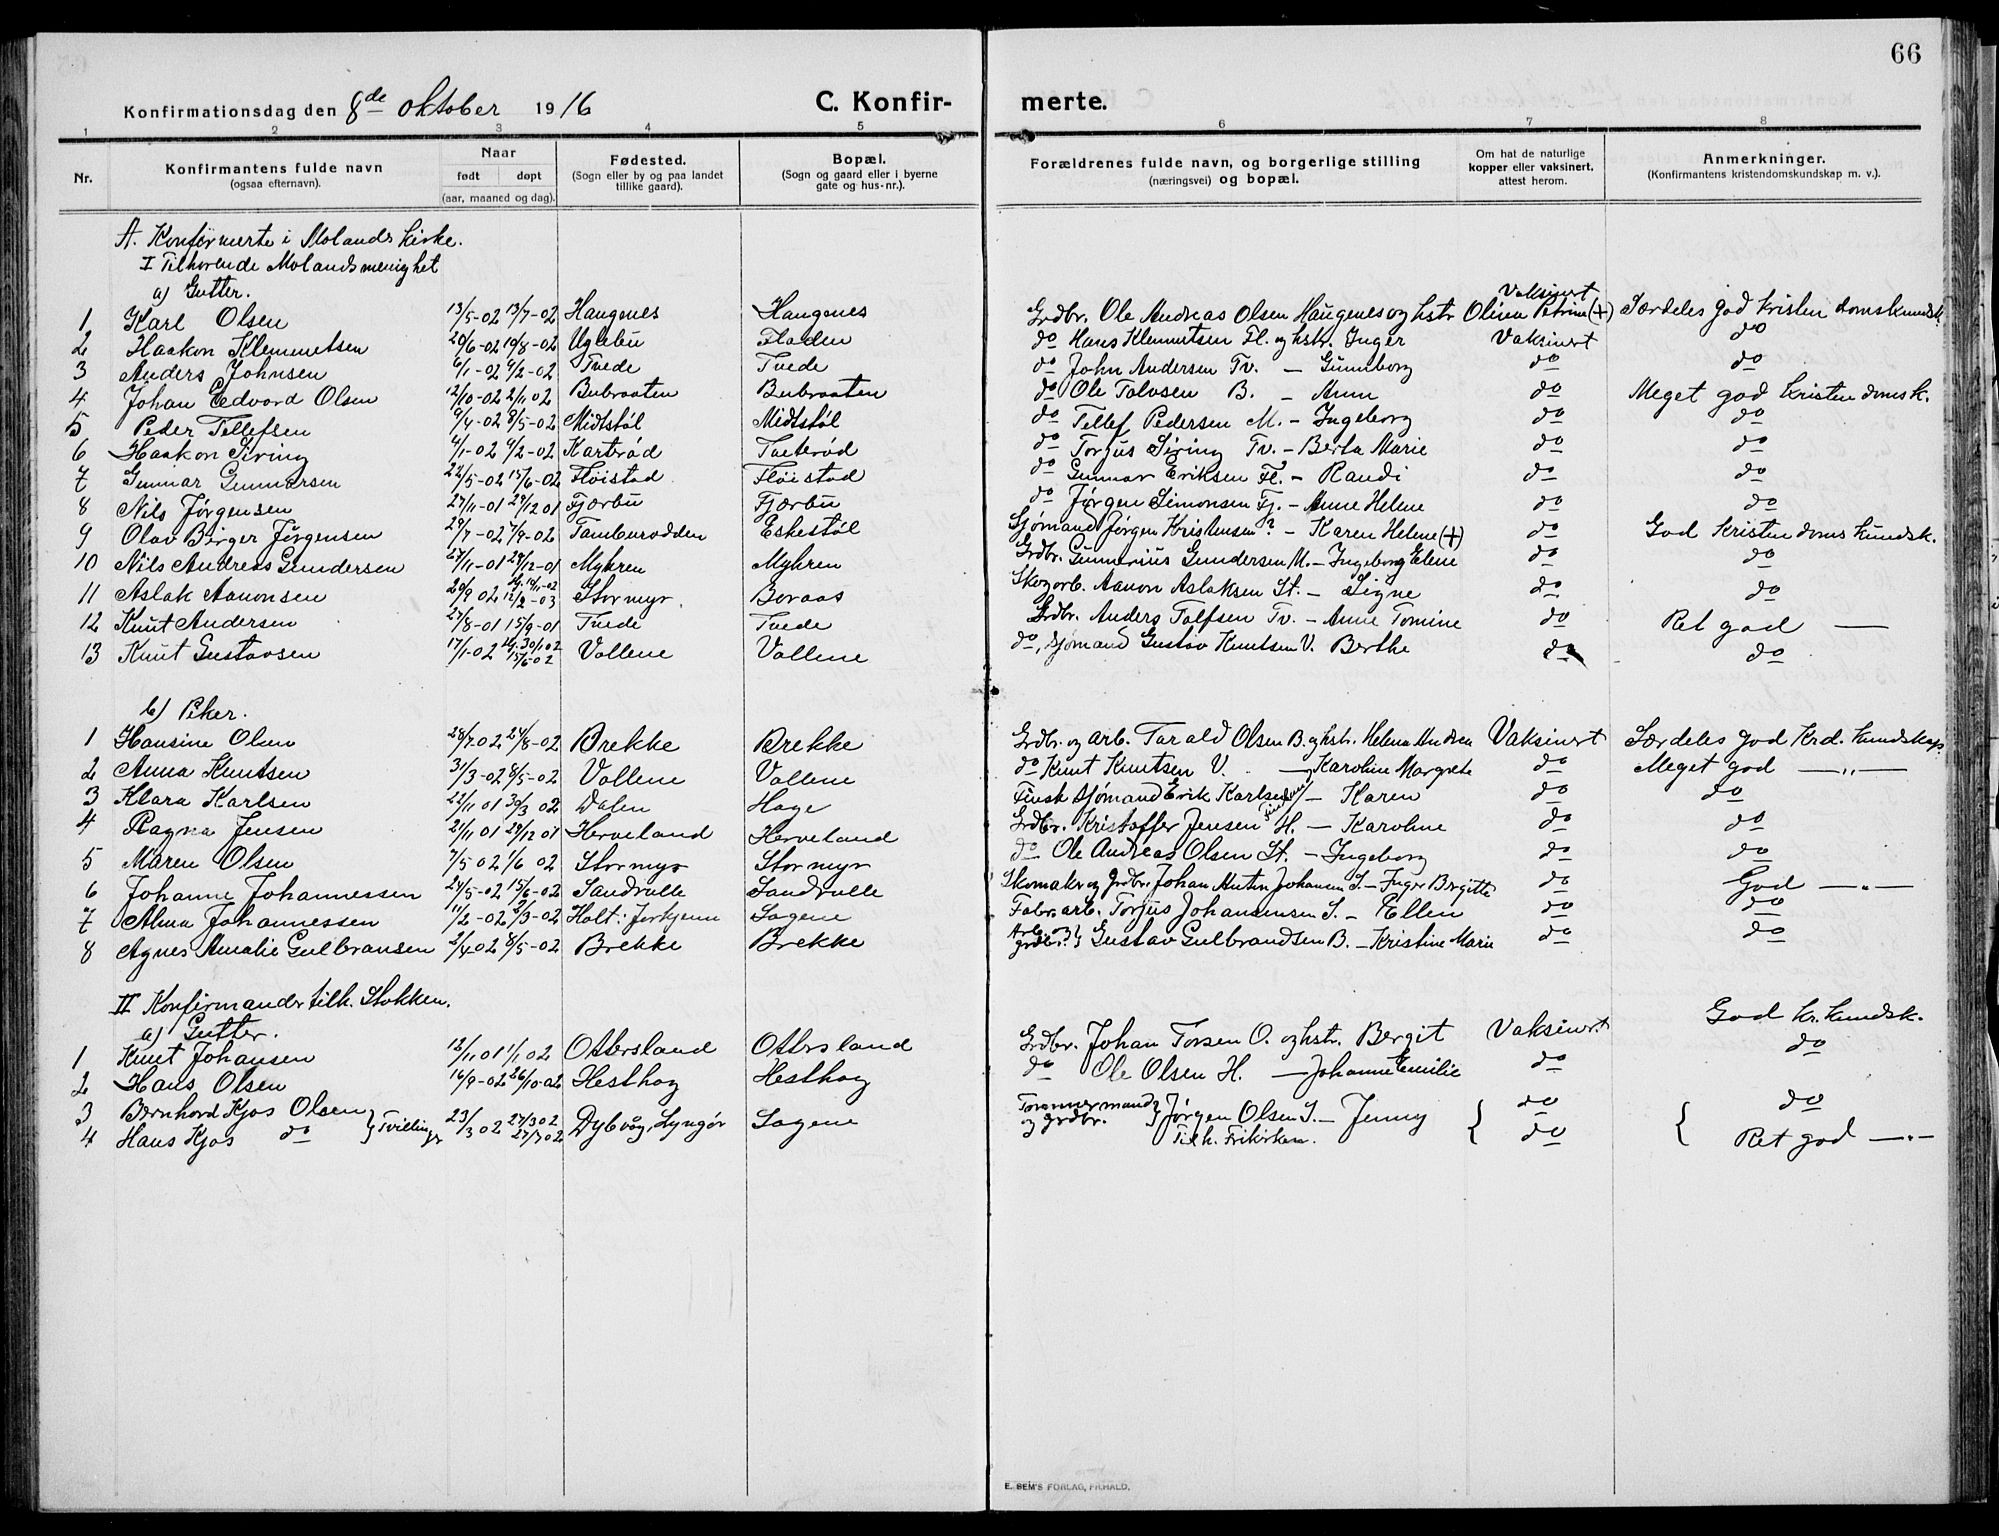 66
Konfirmationsdag den 8de oktober 1916 C. Konfirmerte.
1 2 3 4 5 6 7 8
Nr. Konfirmantens fulde navn (ogsaa efternavn). Naar født døpt (aar, maaned og dag). Fødested. (Sogn eller by og paa landet tillike gaard). Bopæl. (Sogn og gaard eller i byerne gate og hus-nr.). Forældrenes fulde navn, og borgerlige stilling (næringsvei) og bopæl. Om hat de naturlige kopper eller vaksinert, attest herom. Anmerkninger. (Konfirmantens kristendomskundskap m. v.).
A. Konfirmerte i Molands kirke.
I Tilhørende Molands menighet
a) Gutter.
1 Karl Olsen 13/5-02 13/7-02 Haugenes Haugenes Grdbr. Ole Andreas Olsen Haugenes og hstr Oliven Petrine (+) Vaksinert Særdeles god kristendomskundsk.
2 Haakon Klemmetsen 20/6-02 10/8-02 Uglebu Fladen do Hans Klemmetsen Fl. og hstr. Inger Vaksinert do
3 Anders Johnsen 6/1-02 9/2-02 Tvede Tvede do John Andersen Tv. — Gunnborg do do
4 Johan Edvard Olsen 12/10-02 2/11 02 Bubraaten Bubraaten do Ole Talvsen B. — Anne do Meget god kristendomsk.
5 Peder Tellefsen 9/4-02 8/5-02 Midtstøl Midtstøl do Tellef Pedersen M. - Ingeborg do do
6 Haakon Siring 4/1-02 9/2-02 Kartrød Tveterød do Torjus Siring Tv. - Berta Marie do do
7 Gunnar Gunnarsen 22/5-02 15/6-02 Fløistad Fløistad do Gunnar Eriksen Fl. - Randi do do
8 Nils Jørgensen 27/11-01 29/12 01 Fjærbu Fjærbu do Jørgen Simonsen Fj. - Anne Helene do do
9 Olav Birger Jørgensen 29/7-02 7/9-02 Tamburodden Eskestøl Sjømand Jørgen Kristensen? - Karen Helene (+) do God kristendomskundsk.
10 Nils Andreas Gundersen 27/11-01 29/12-01 Myhren Myhren Grdbr. Gunnerius Gundersen M. - Ingeborg Elene do do
11 Aslak Aanonsen 20/9 02 12/2-03 Stormyr. Boraas Skogarb. Aanon Aslaksen St. - Signe do do
12 Knut Andersen 27/8-01 15/9-01 Tvede Tvede Grdbr. Anders Tolfsen Tv. - Anne Tomine do Ret god —
13 Knut Gustavsen 17/1-02 Hj. 30/1 02 15/6-02 Vollene Vollene do, sjømand Gustav Knutsen V. Berthe do do
b) Piker.
1 Hansine Olsen 28/7 02 24/8-02 Brekke Brekke Grdbr. og arb. Tarald Olsen B. og hstr. Helene Andrea Vaksinert Særdeles god Krd. kundskap.
2 Anna Knutsen 31/3-02 8/5-02 Vollene Vollene do Knut Knutsen V. — Karoline Margrete do Meget god —„—
3 Klara Karlsen 22/11 01 30/3 02 Dalen Hage Finsk sjømand Erik Karlsen — Karen do do
4 Ragna Jensen 21/11 01 29/12 01 Herveland Herveland Grdbr. Kristoffer Jensen H. — Karoline do do
5 Maren Olsen 7/5 02 1/6 02 Stormyr Stormyr do Ole Andreas Olsen St. - Ingeborg do do
6 Johanne Johannessen 24/5-02 15/6-02 Sandvalle Sandvalle Skomaker og grdbr. Johan Anton Johansen S. - Inger Birgitte do God —„—
7 Alma Johannessen 11/2-02 9/3-02 Holt: Songene Fabr. arb. Torjus Johannsen S. - Ellen do do
8 Agnes Amalie Gulbransen 2/4-02 8/5-02 Brekke Brekke Arb. og grdbr. } Gustav Gulbrandsen B. - Kristine Marie do do
II Konfirmander tilh. Stokken.
a) Gutter.
1 Knut Johansen 12/11 01 1/1 02 Ottersland Ottersland Grdbr. Johan Torsen O. og hstr. Bergit Vaksinert God kr. kundsk.
2 Hans Olsen 16/9-02 26/10-02 Hesthag Hesthag do Ole Olsen H. — Johanne Emilie do do
3 Bernhard Kjos Olsen } Tvillinger 23/3 02 27/3 02 Dybvåg, Lyngør Sagene Tømmermand og grdbr. } Jørgen Olsen S. - Jenny { do { do
4 Hans Kjos do 27/7 02 Tilh. Frikirken. do Ret god —„—
E. SEM'S FORLAG, FR.HALD.